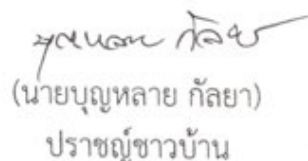 บุญหลาย กัลยา
(นายบุญหลาย กัลยา)
ปราชญ์ชาวบ้าน